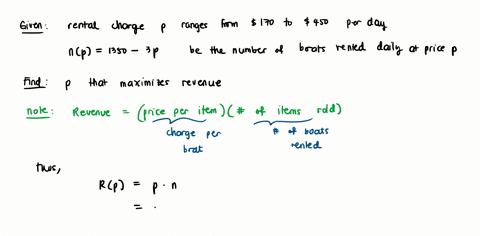 Given: rental charge p ranges from $170 to $450 per day
n(p) = 1350 - 3p be the number of boats rented daily at price p
Find: p that maximizes revenue
note: Revenue = (price per item)(# of items sold)
charge per boat
# of boats rented
thus,
R(p) = p · n
= .